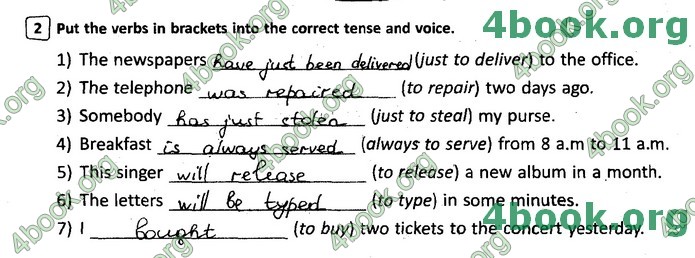 2 Put the verbs in brackets into the correct tense and voice.
1) The newspapers have just been delivered (just to deliver) to the office.
2) The telephone was repaired (to repair) two days ago.
3) Somebody has just stolen (just to steal) my purse.
4) Breakfast is always served (always to serve) from 8 a.m to 11 a.m.
5) This singer will release (to release) a new album in a month.
6) The letters will be typed (to type) in some minutes.
7) I bought (to buy) two tickets to the concert yesterday.
4book.org
4book.org
4book.org
4book.org
4book.org
4book.org
4book.org